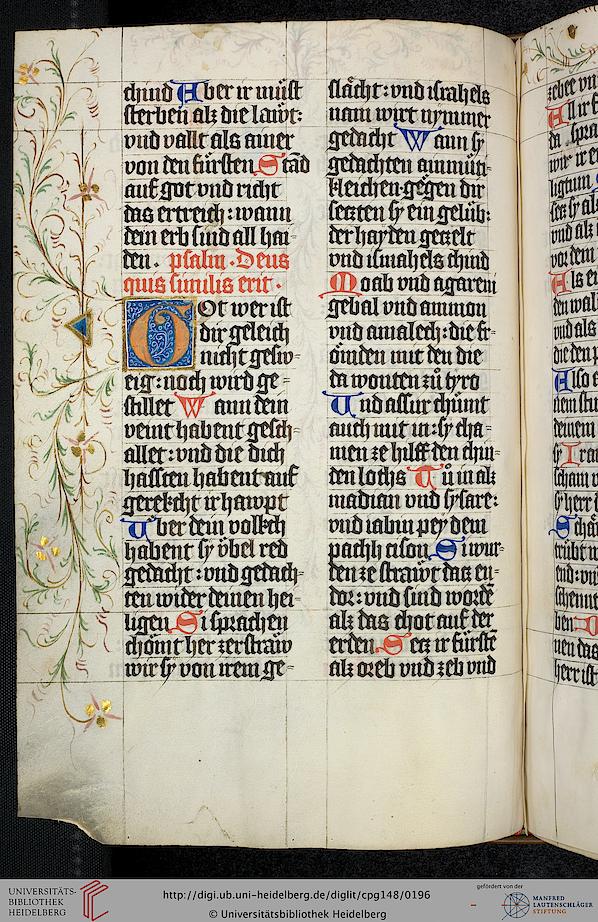 chind Aber ir müst
sterben alz die läwt:
vnd vallt als ainer
von den fürsten Stād
auf got vnd richt
das ertreich: wann
dein erb sind all hai-
den. psalm. Deus
quis similis erit.
Got wer ist
dir geleich
nicht gesw-
eig: noch wird ge-
stillet Wann dein
veint habent gesch-
allet: vnd die dich
hassten habent auf
gerekcht ir hawpt
Uber dein volkch
habent sy übel red
gedacht: vnd gedach-
ten wider deinen hei-
ligen Si sprachen
chömt her zerstraw
wir sy von irem ge-
slächt: vnd israhels
nam wirt nymmer
gedacht Wann sy
gedachten ainmüti-
kleichen gegen dir
seczten sy ein gelüb:
der hayden geczelt
vnd ismahels chind
Moab vnd agareni
gebal vnd ammon
vnd amalech: die fr-
ömden mit den die
da wonten zů tyro
Und assur chümt
auch mit in: sy cha-
men ze hilff den chin-
den loths Tů in alz
madian vnd sysare:
vnd iabin pey dem
pachh cison Si wur-
den ze sträwt daz en-
dor: vnd sind wordē
alz das chot auf der
erden Secz ir fürstē
alz oreb vnd zeb vnd
UNIVERSITÄTS-
BIBLIOTHEK
HEIDELBERG
http://digi.ub.uni-heidelberg.de/diglit/cpg148/0196
© Universitätsbibliothek Heidelberg
gefördert von der
MANFRED
LAUTENSCHLÄGER
STIFTUNG